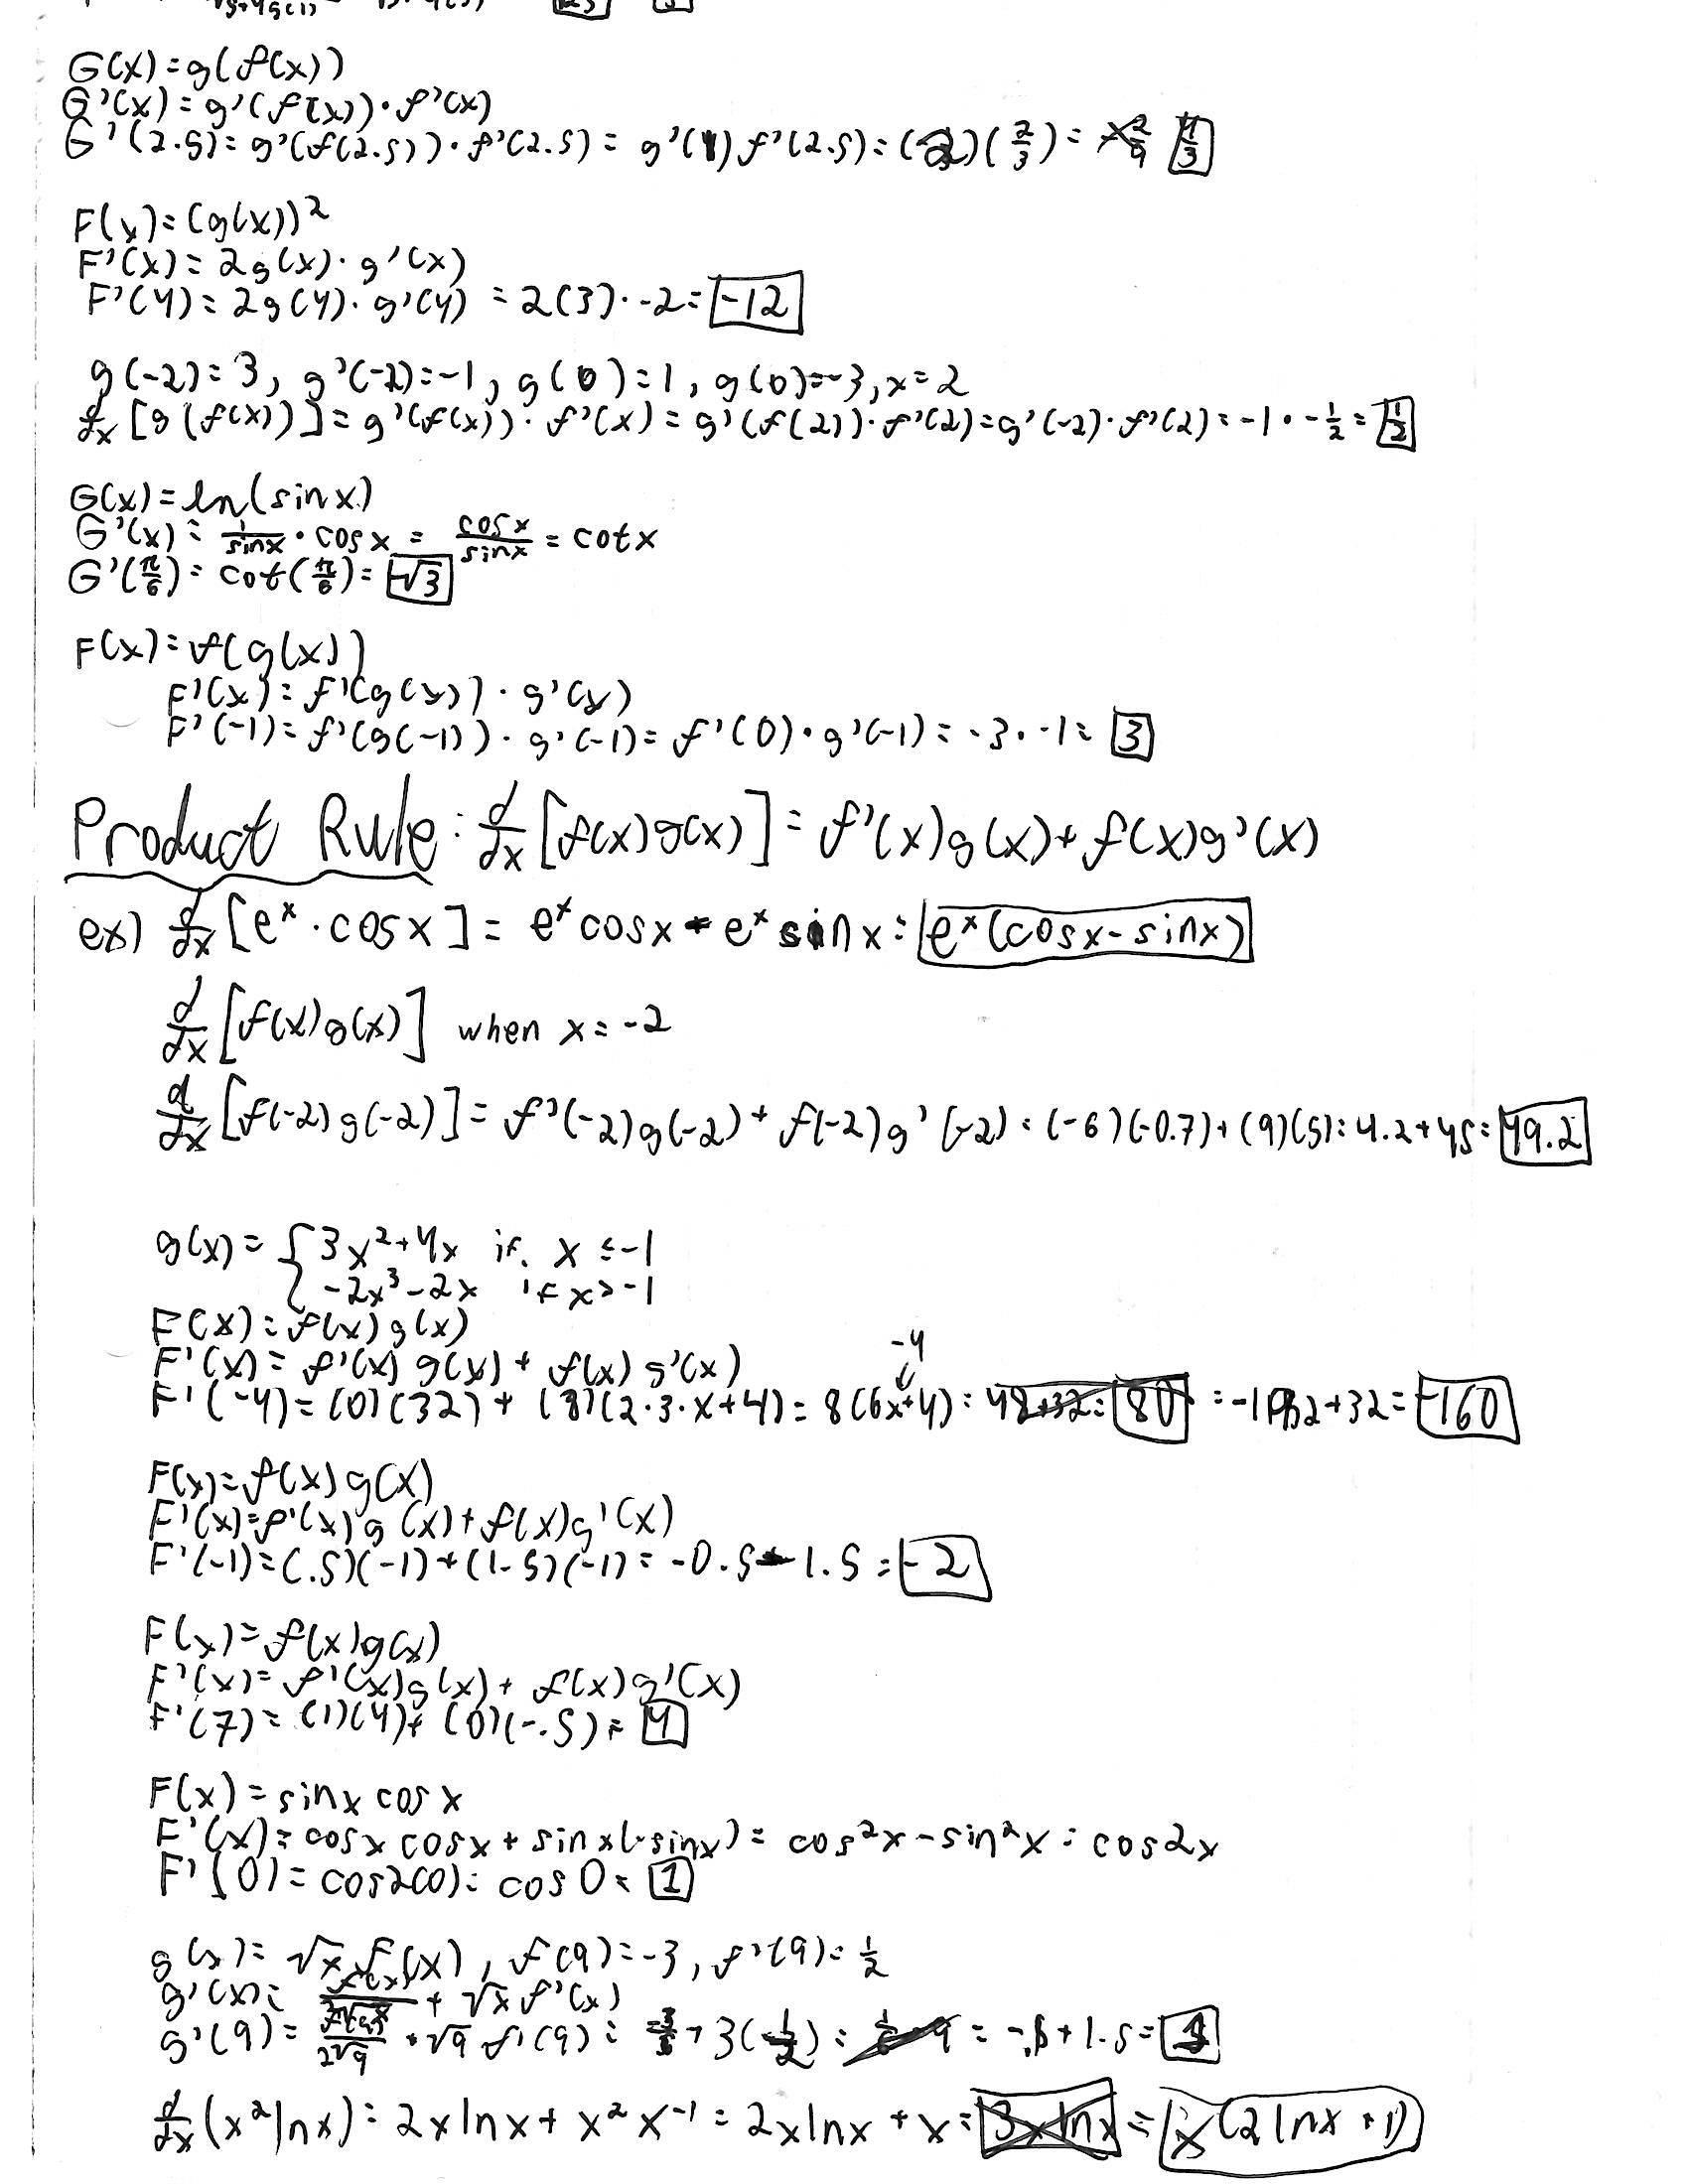 G(x)=g(f(x))
G'(x)=g'(f(x))·f'(x)
G'(2.5)=g'(f(2.5))·f'(2.5)=g'(1)f'(2.5)=(2)(2/3)= 4/3
F(x)=(g(x))²
F'(x)=2g(x)·g'(x)
F'(4)=2g(4)·g'(4) =2(3)·-2=-12
g(-2)=3, g'(-2)=-1, g(0)=1, g(0)=-3, x=2
d/dx [g(f(x))]=g'(f(x))·f'(x)=g'(f(2))·f'(2)=g'(-2)·f'(2)=-1·-1/2=1/2
G(x)=ln(sinx)
G'(x)=1/sinx·cosx=cosx/sinx=cotx
G'(π/6)=cot(π/6)=√3
F(x)=f(g(x))
F'(x)=f'(g(x))·g'(x)
F'(-1)=f'(g(-1))·g'(-1)=f'(0)·g'(-1)=-3·-1=3
Product Rule: d/dx [f(x)g(x)]=f'(x)g(x)+f(x)g'(x)
ex) d/dx [eˣ·cosx]=eˣcosx-eˣsinx=eˣ(cosx-sinx)
d/dx [f(x)g(x)] when x=-2
d/dx [f(-2)g(-2)]=f'(-2)g(-2)+f(-2)g'(-2)=(-6)(-0.7)+(9)(5)=4.2+45=49.2
g(x)={3x²+4x if x≤-1
-2x³-2x if x>-1
F(x)=f(x)g(x)
F'(x)=f'(x)g(x)+f(x)g'(x)
-4
F'(-4)=(0)(32)+(8)(2·3·x+4)=8(6x+4)=48+32=80=-192+32=-160
F(x)=f(x)g(x)
F'(x)=f'(x)g(x)+f(x)g'(x)
F'(-1)=(.5)(-1)+(1.5)(-1)=-0.5-1.5=-2
F(x)=f(x)g(x)
F'(x)=f'(x)g(x)+f(x)g'(x)
F'(7)=(1)(4)+(0)(-.5)=4
F(x)=sinx cosx
F'(x)=cosx cosx+sinx(-sinx)=cos²x-sin²x=cos2x
F'(0)=cos2(0)=cos0=1
g(x)=√x f(x), f(9)=-3, f'(9)=1/2
g'(x)=f(x)/2√x+√x f'(x)
g'(9)=f(9)/2√9+√9 f'(9)=-3/6+3(1/2)= =-.5+1.5=1
d/dx(x²lnx)=2xlnx+x²x⁻¹=2xlnx+x=3xlnx=x(2lnx+1)